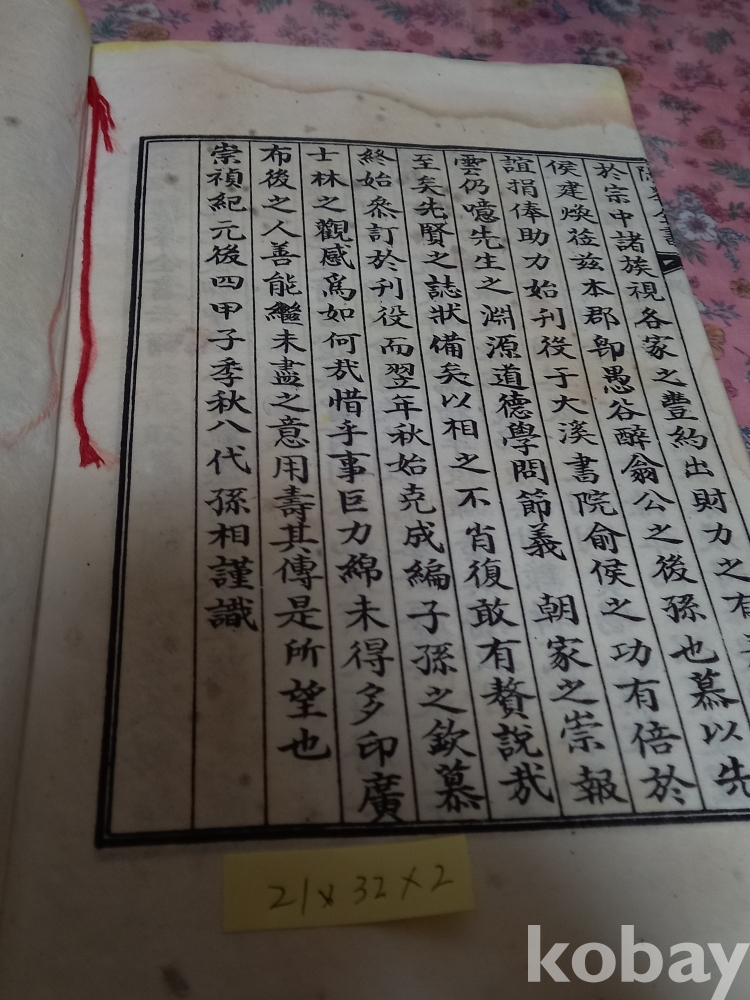 全書
於宗中諸族視各家之豐約出財力之有
侯建煥莅玆本郡卽愚谷醉翁公之後孫也慕以先
誼捐俸助力始刊役于大溪書院俞侯之功有倍於
雲仍噫先生之淵源道德學問節義 朝家之崇報
至矣先賢之誌狀備矣以相之不肖復敢有贅說哉
終始叅訂於刊役而翌年秋始克成編子孫之欽慕
士林之觀感爲如何哉惜乎事巨力綿未得多印廣
布後之人善能繼未盡之意用壽其傳是所望也
崇禎紀元後四甲子季秋八代孫相謹識
21 x 32 x 2
kobay